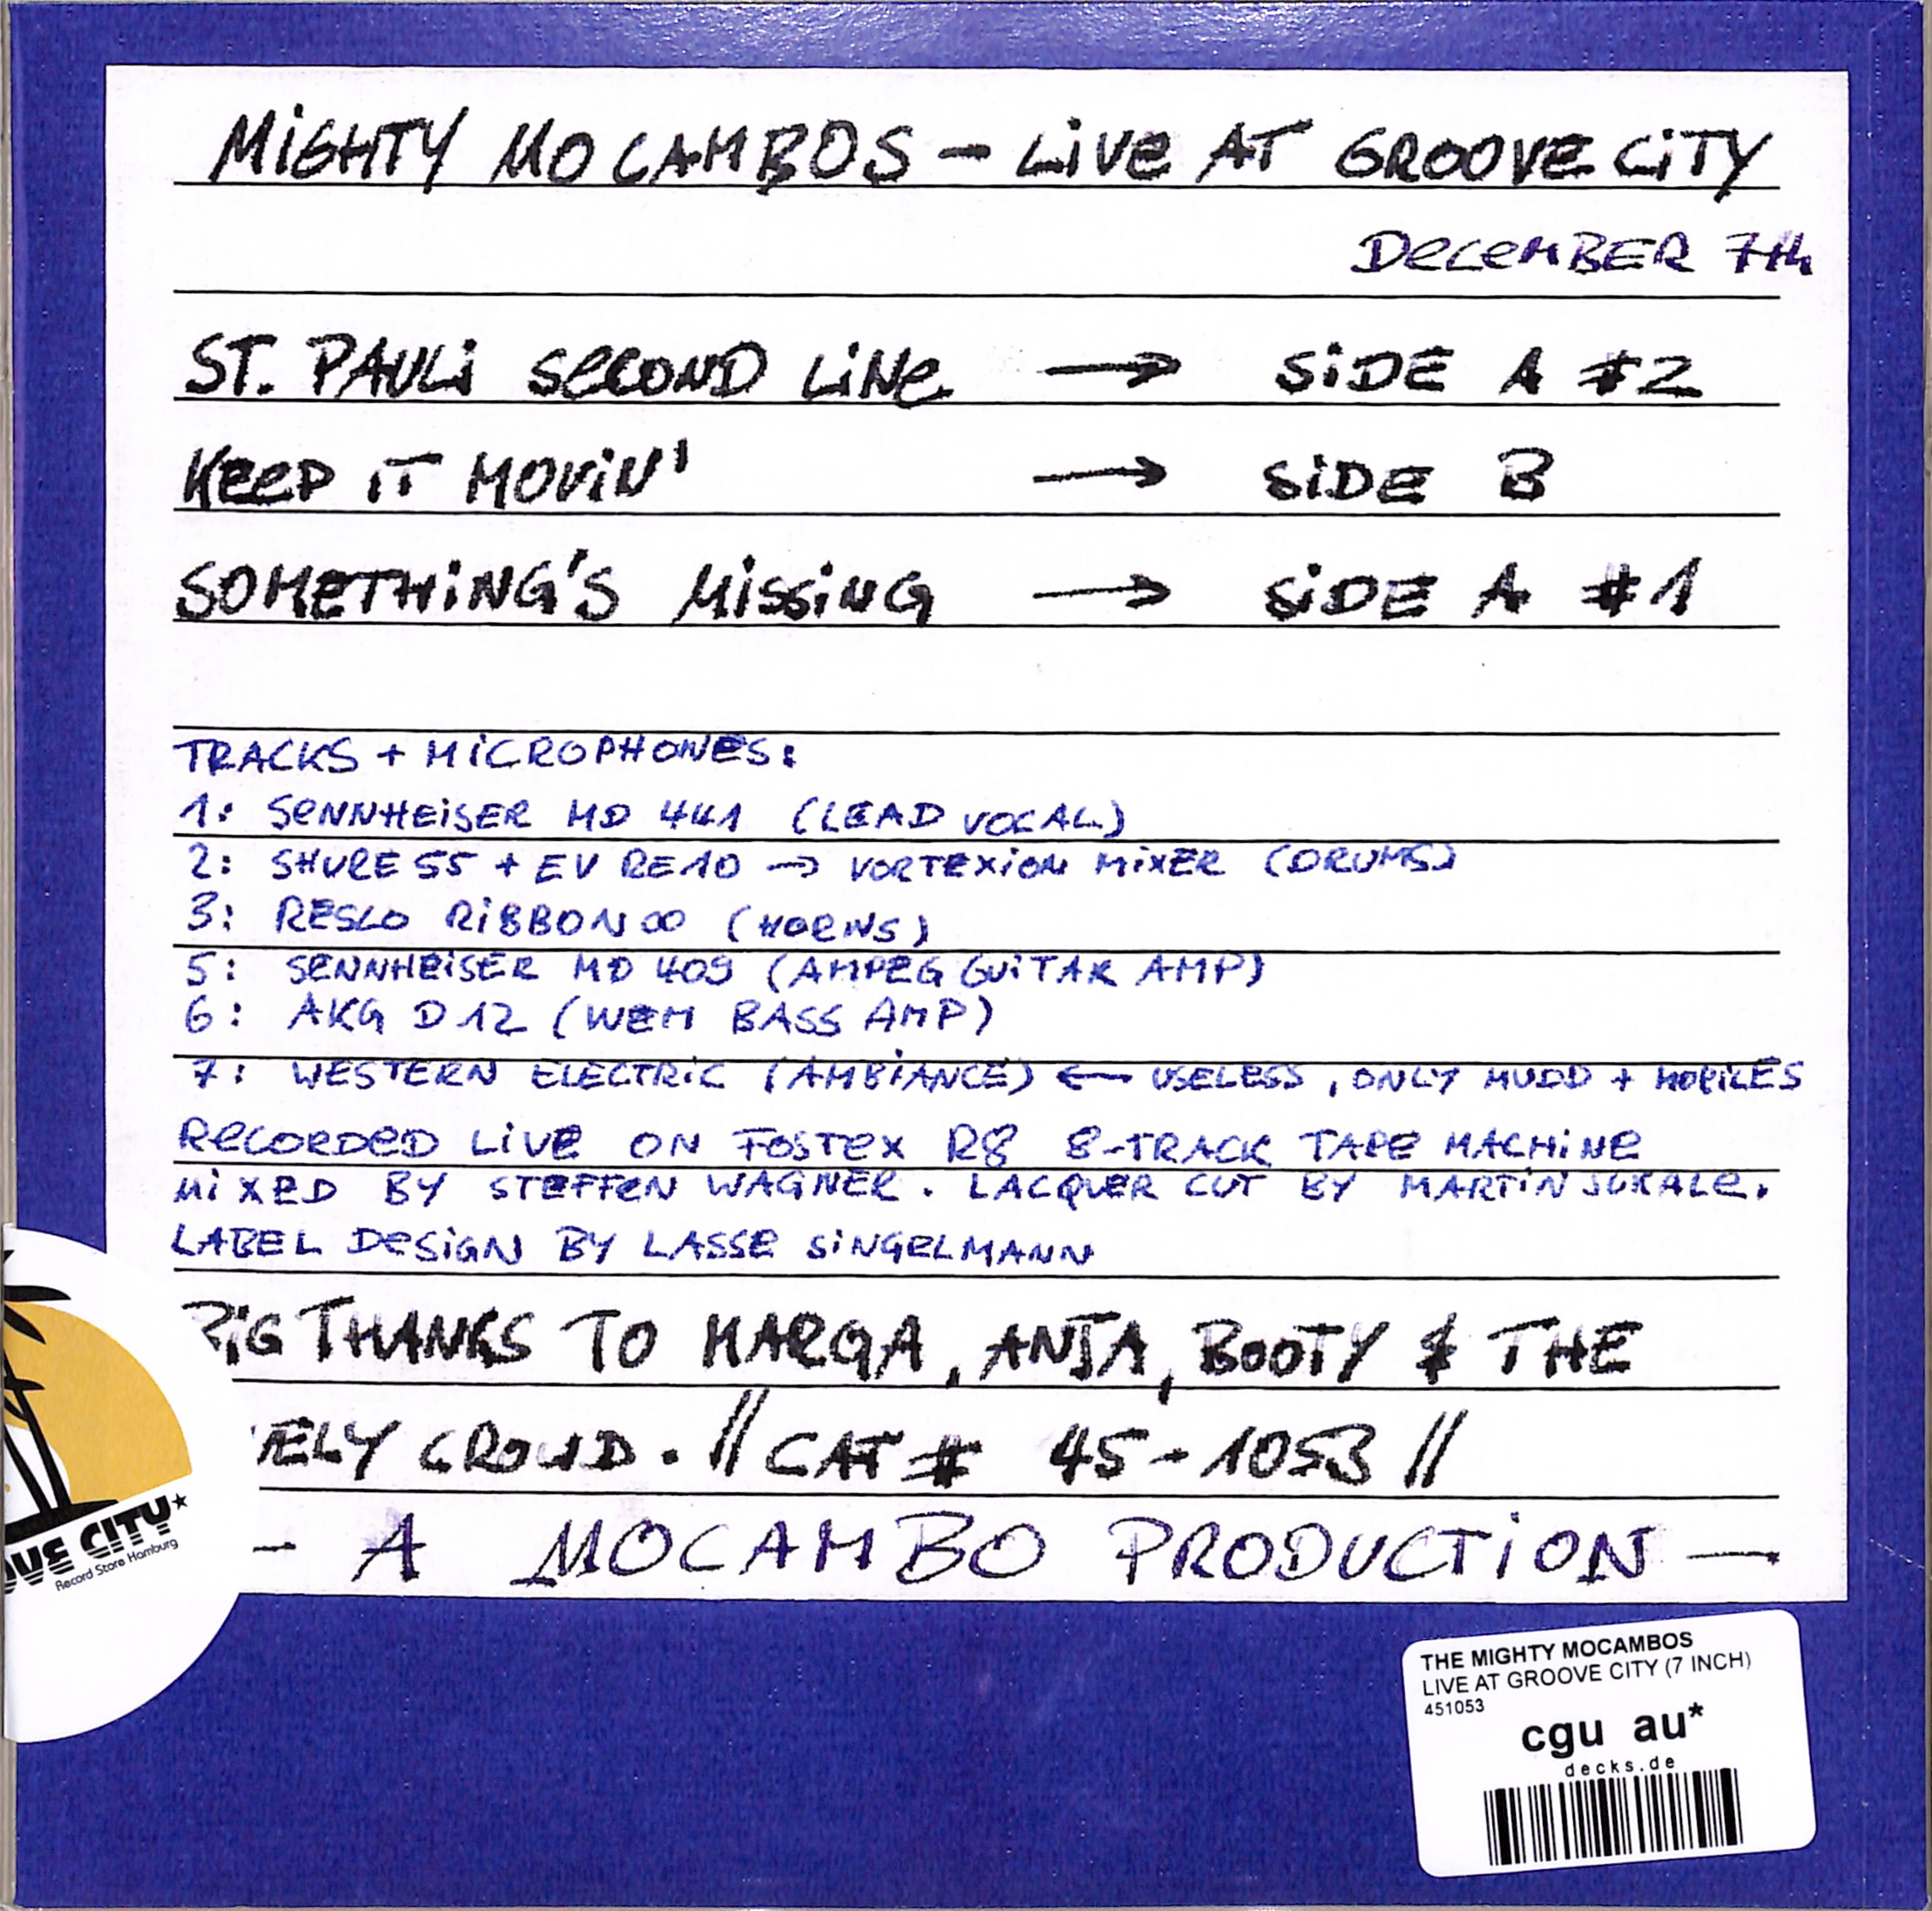 MIGHTY MOCAMBOS - LIVE AT GROOVE CITY
DECEMBER 7th
ST. PAULI SECOND LINE → SIDE A #2
KEEP IT MOVIN' → SIDE B
SOMETHING'S MISSING → SIDE A #1
TRACKS + MICROPHONES:
1: SENNHEISER MD 441 (LEAD VOCAL)
2: SHURE 55 + EV RE10 → VORTEXION MIXER (DRUMS)
3: RESLO RIBBON ∞ (HORNS)
5: SENNHEISER MD 409 (AMPEG GUITAR AMP)
6: AKG D12 (WEM BASS AMP)
7: WESTERN ELECTRIC (AMBIANCE) ← USELESS, ONLY MUDD + MOBILES
RECORDED LIVE ON FOSTEX R8 8-TRACK TAPE MACHINE
MIXED BY STEFFEN WAGNER. LACQUER CUT BY MARTIN SUKALE.
LABEL DESIGN BY LASSE SINGELMANN
BIG THANKS TO MARGA, ANJA, BOOTY & THE
VELY CROWD. // CAT # 45-1053 //
- A MOCAMBO PRODUCTION -
OVE CITY*
Record Store Hamburg
THE MIGHTY MOCAMBOS
LIVE AT GROOVE CITY (7 INCH)
451053
cgu au*
decks.de